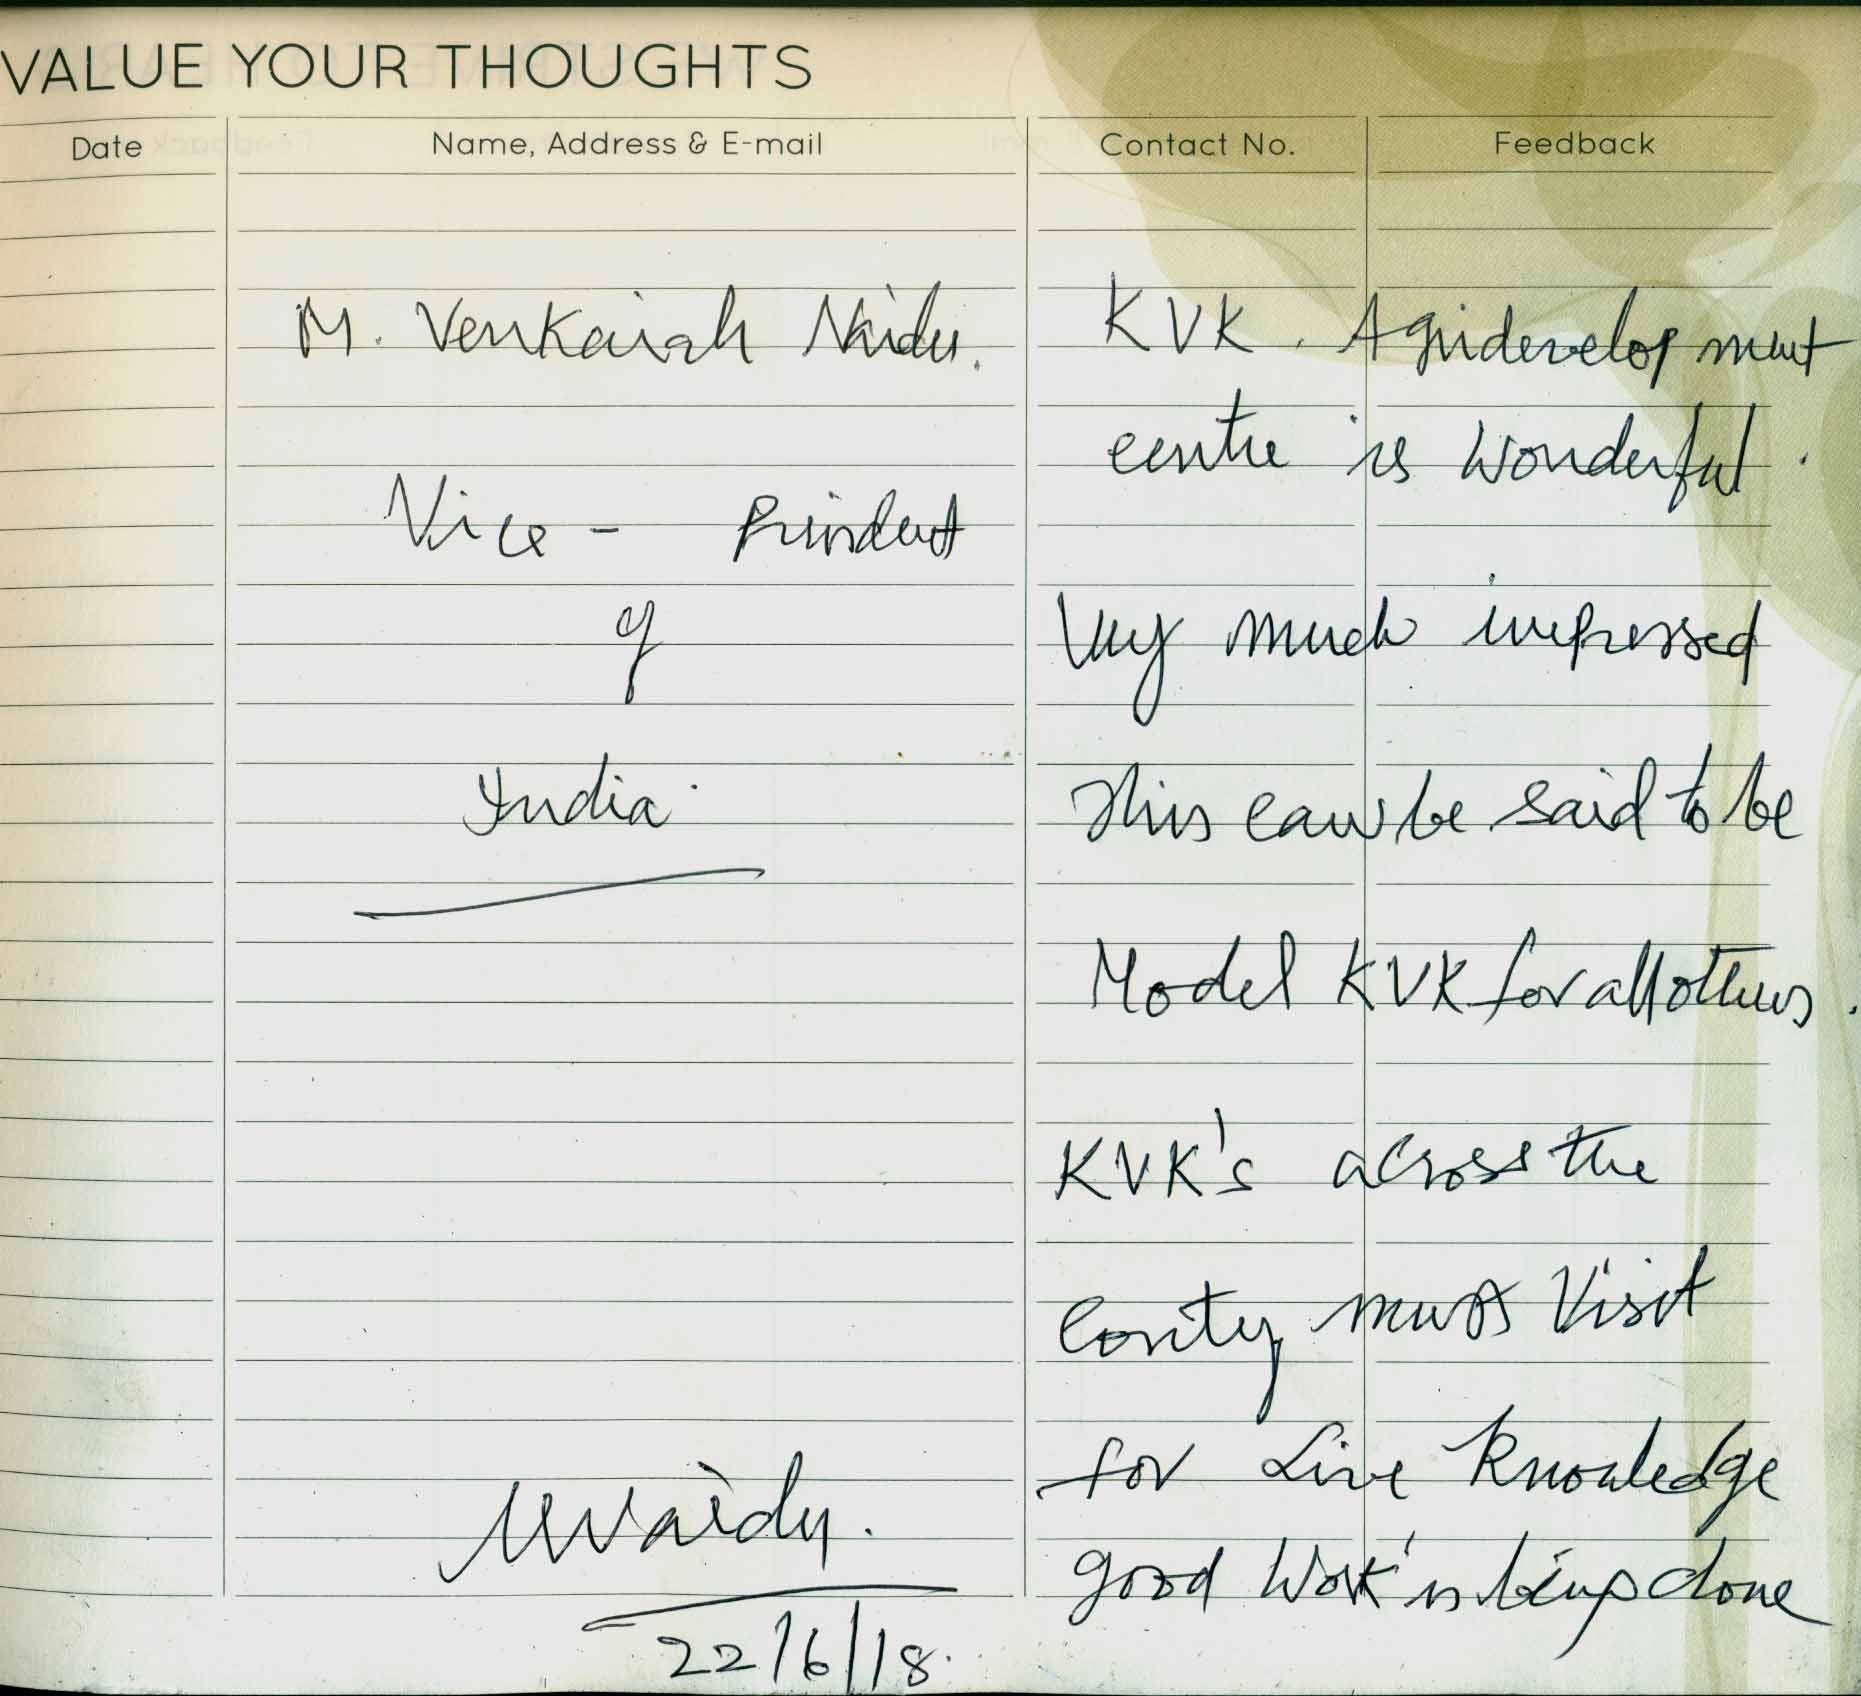 VALUE YOUR THOUGHTS
Date Name, Address & E-mail Contact No. Feedback
M. Venkaiah Naidu.
Vice - President
of
India.
MVNaidu.
22/6/18.
KVK. Agridevelopment
centre is Wonderful.
Very much impressed
This can be said to be
Model KVK for all others.
KVK's across the
Conty must Visit
for Live Knowledge
good Work is being done